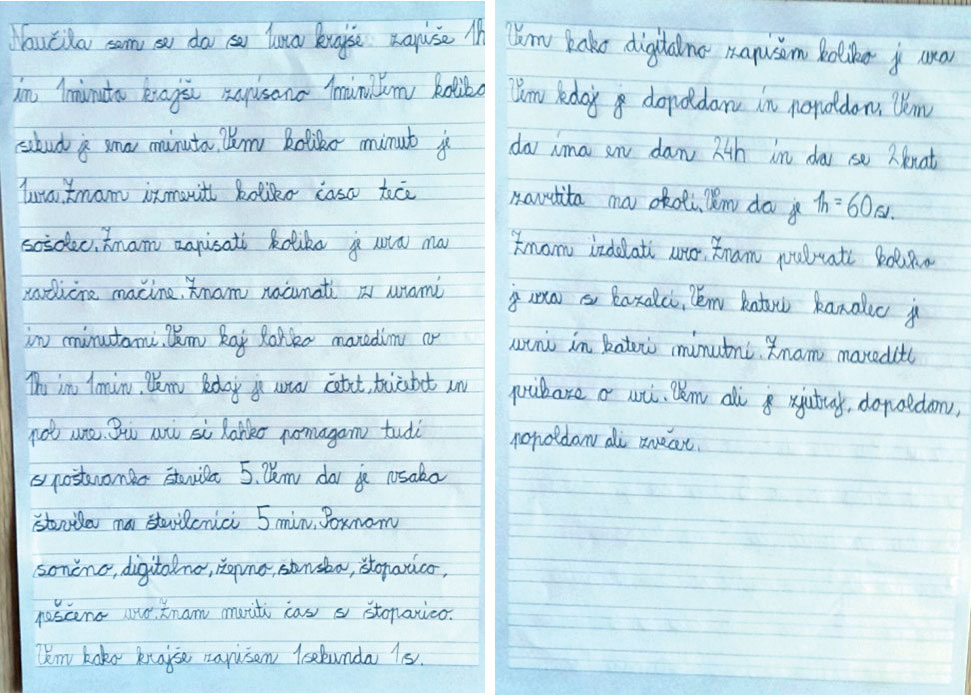 Naučila sem se da se 1ura krajše zapiše 1h
in 1minuta krajši zapisano 1min. Vem koliko
sekud je ena minuta. Vem koliko minut je
1ura. Znam izmeriti koliko časa teče
sošolec. Znam zapisati kolika je ura na
različne načine. Znam računati z urami
in minutami. Vem kaj lahko naredim v
1h in 1min. Vem kdaj je ura četrt, tričetrt in
pol ure. Pri uri si lahko pomagam tudi
s pošteranko števila 5. Vem da je vsaka
števila na številčnici 5 min. Poznam
sončno, digitalno, žepno, stensko, štoparico,
peščeno uro. Znam meriti čas s štoparico.
Vem kako krajše zapišen 1sekunda 1s.
Vem kako digitalno zapišem koliko je ura
Vem kdaj je dopoldan in popoldan. Vem
da ima en dan 24h in da se 2krat
zavrtita na okoli. Vem da je 1h = 60s.
Znam izdelati uro. Znam prebrati koliko
je ura s kazalci. Vem kateri kazalec je
urni in kateri minutni. Znam narediti
prikaze o uri. Vem ali je zjutraj, dopoldan,
popoldan ali zvečer.